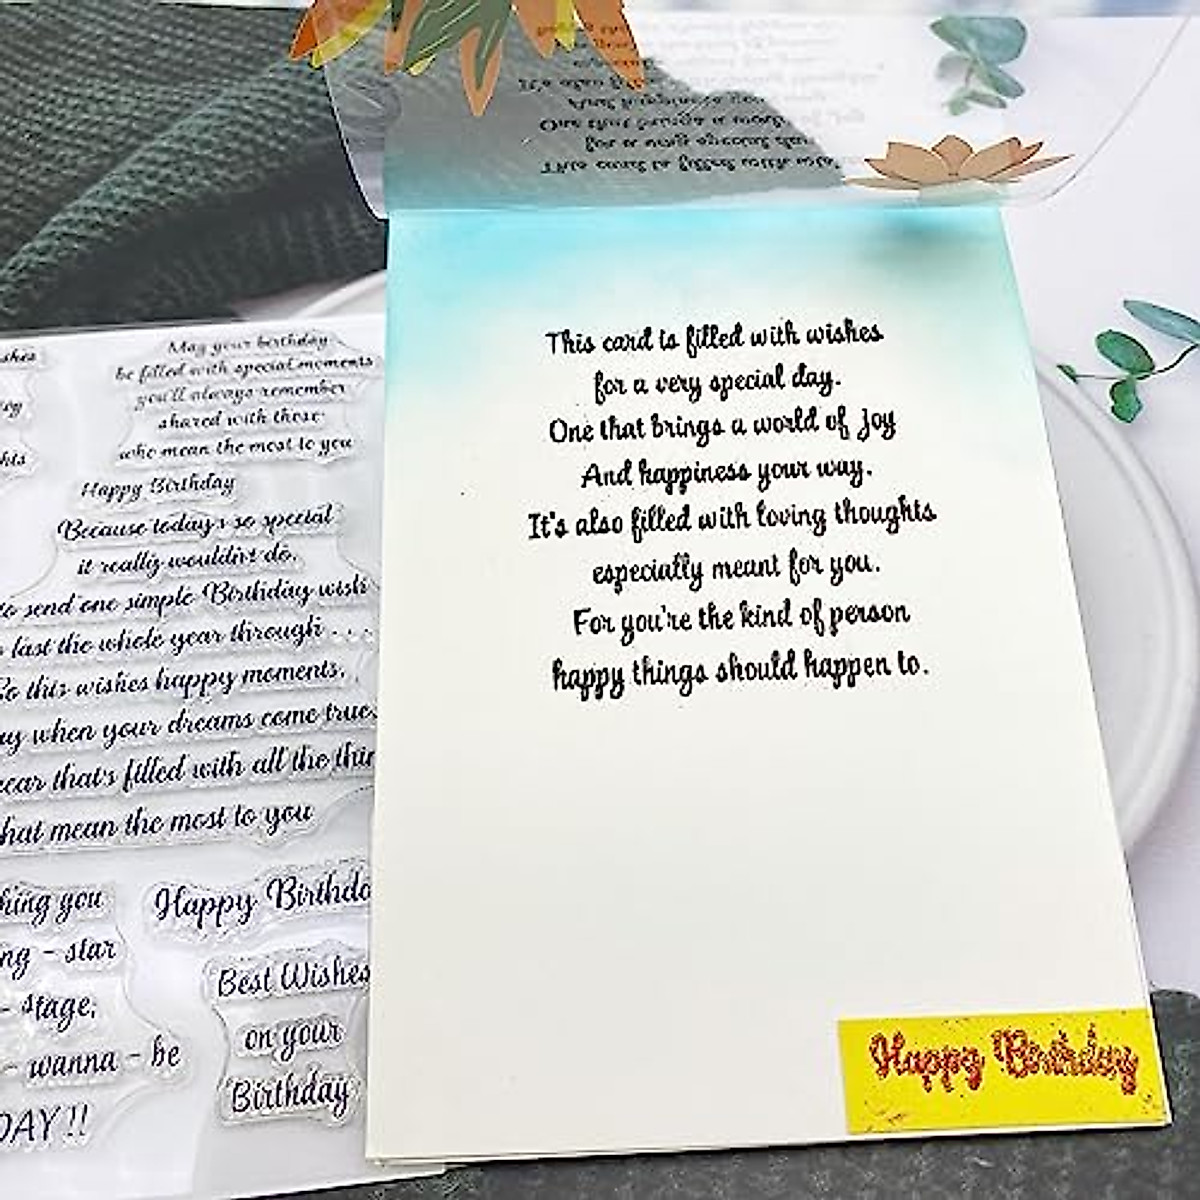 This card is filled with wishes
for a very special day.
One that brings a world of Joy
And happiness your way.
It's also filled with loving thoughts
especially meant for you.
For you're the kind of person
happy things should happen to.
Happy Birthday
May your birthday
be filled with special moments
you'll always remember
shared with those
who mean the most to you
Happy Birthday
Because today's so special
it really wouldn't do,
to send one simple Birthday wish
last the whole year through . . .
So this wishes happy moments,
when your dreams come true,
that's filled with all the
that mean the most to you
you
- star
- stage,
- wanna - be
DAY !!
Happy
Best Wishes
on your
Birthday